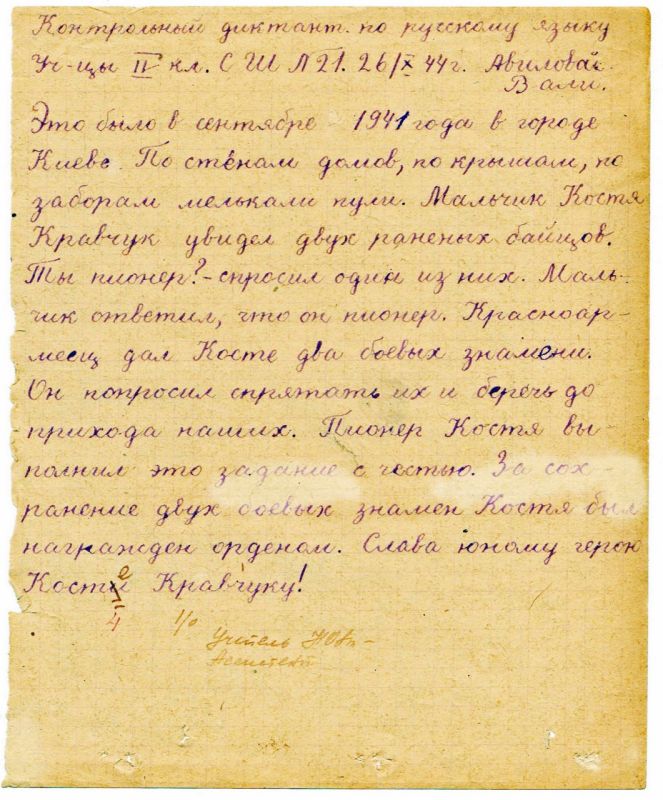 Контрольный диктант по русскому языку
Уч-цы II кл. СШ № 21. 26/X 44г. Авиловой
Вали.
Это было в сентябре 1941 года в городе
Киеве. По стенам домов, по крышам, по
заборам мелькали пули. Мальчик Костя
Кравчук увидел двух раненых байцов.
Ты пионер? - спросил один из них. Маль-
чик ответил, что он пионер. Красноар-
меец дал Косте два боевых знамени.
Он попросил спрятать их и беречь до
прихода наших. Пионер Костя вы-
полнил это задание с честью. За сох-
ранение двух боевых знамен Костя был
награжден орденом. Слава юному герою
Косте Кравчуку!
4 1/0
Учитель
Ассистент